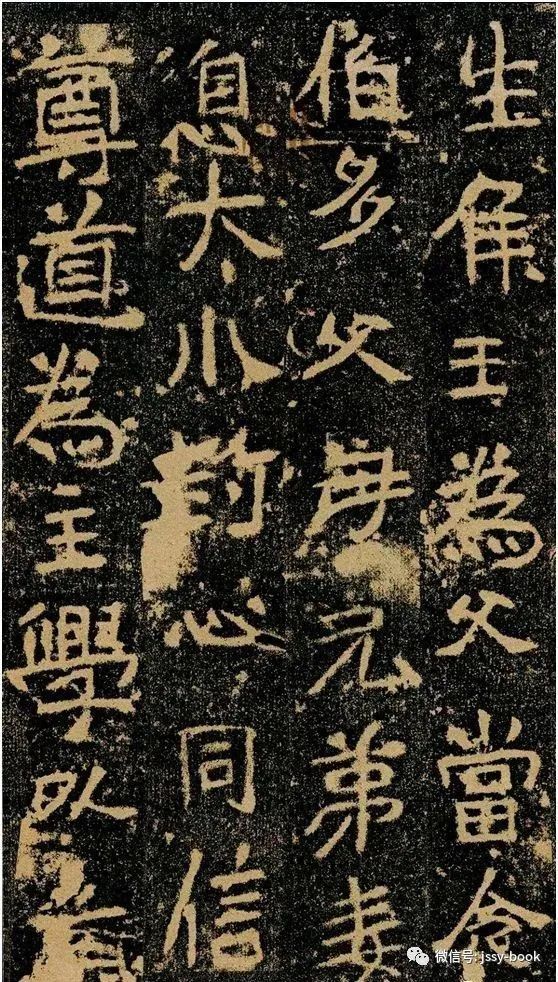 生侯王為父當令
伯多父母兄弟妻
息大小心同信
尊道為主學以
微信号: jssy-book